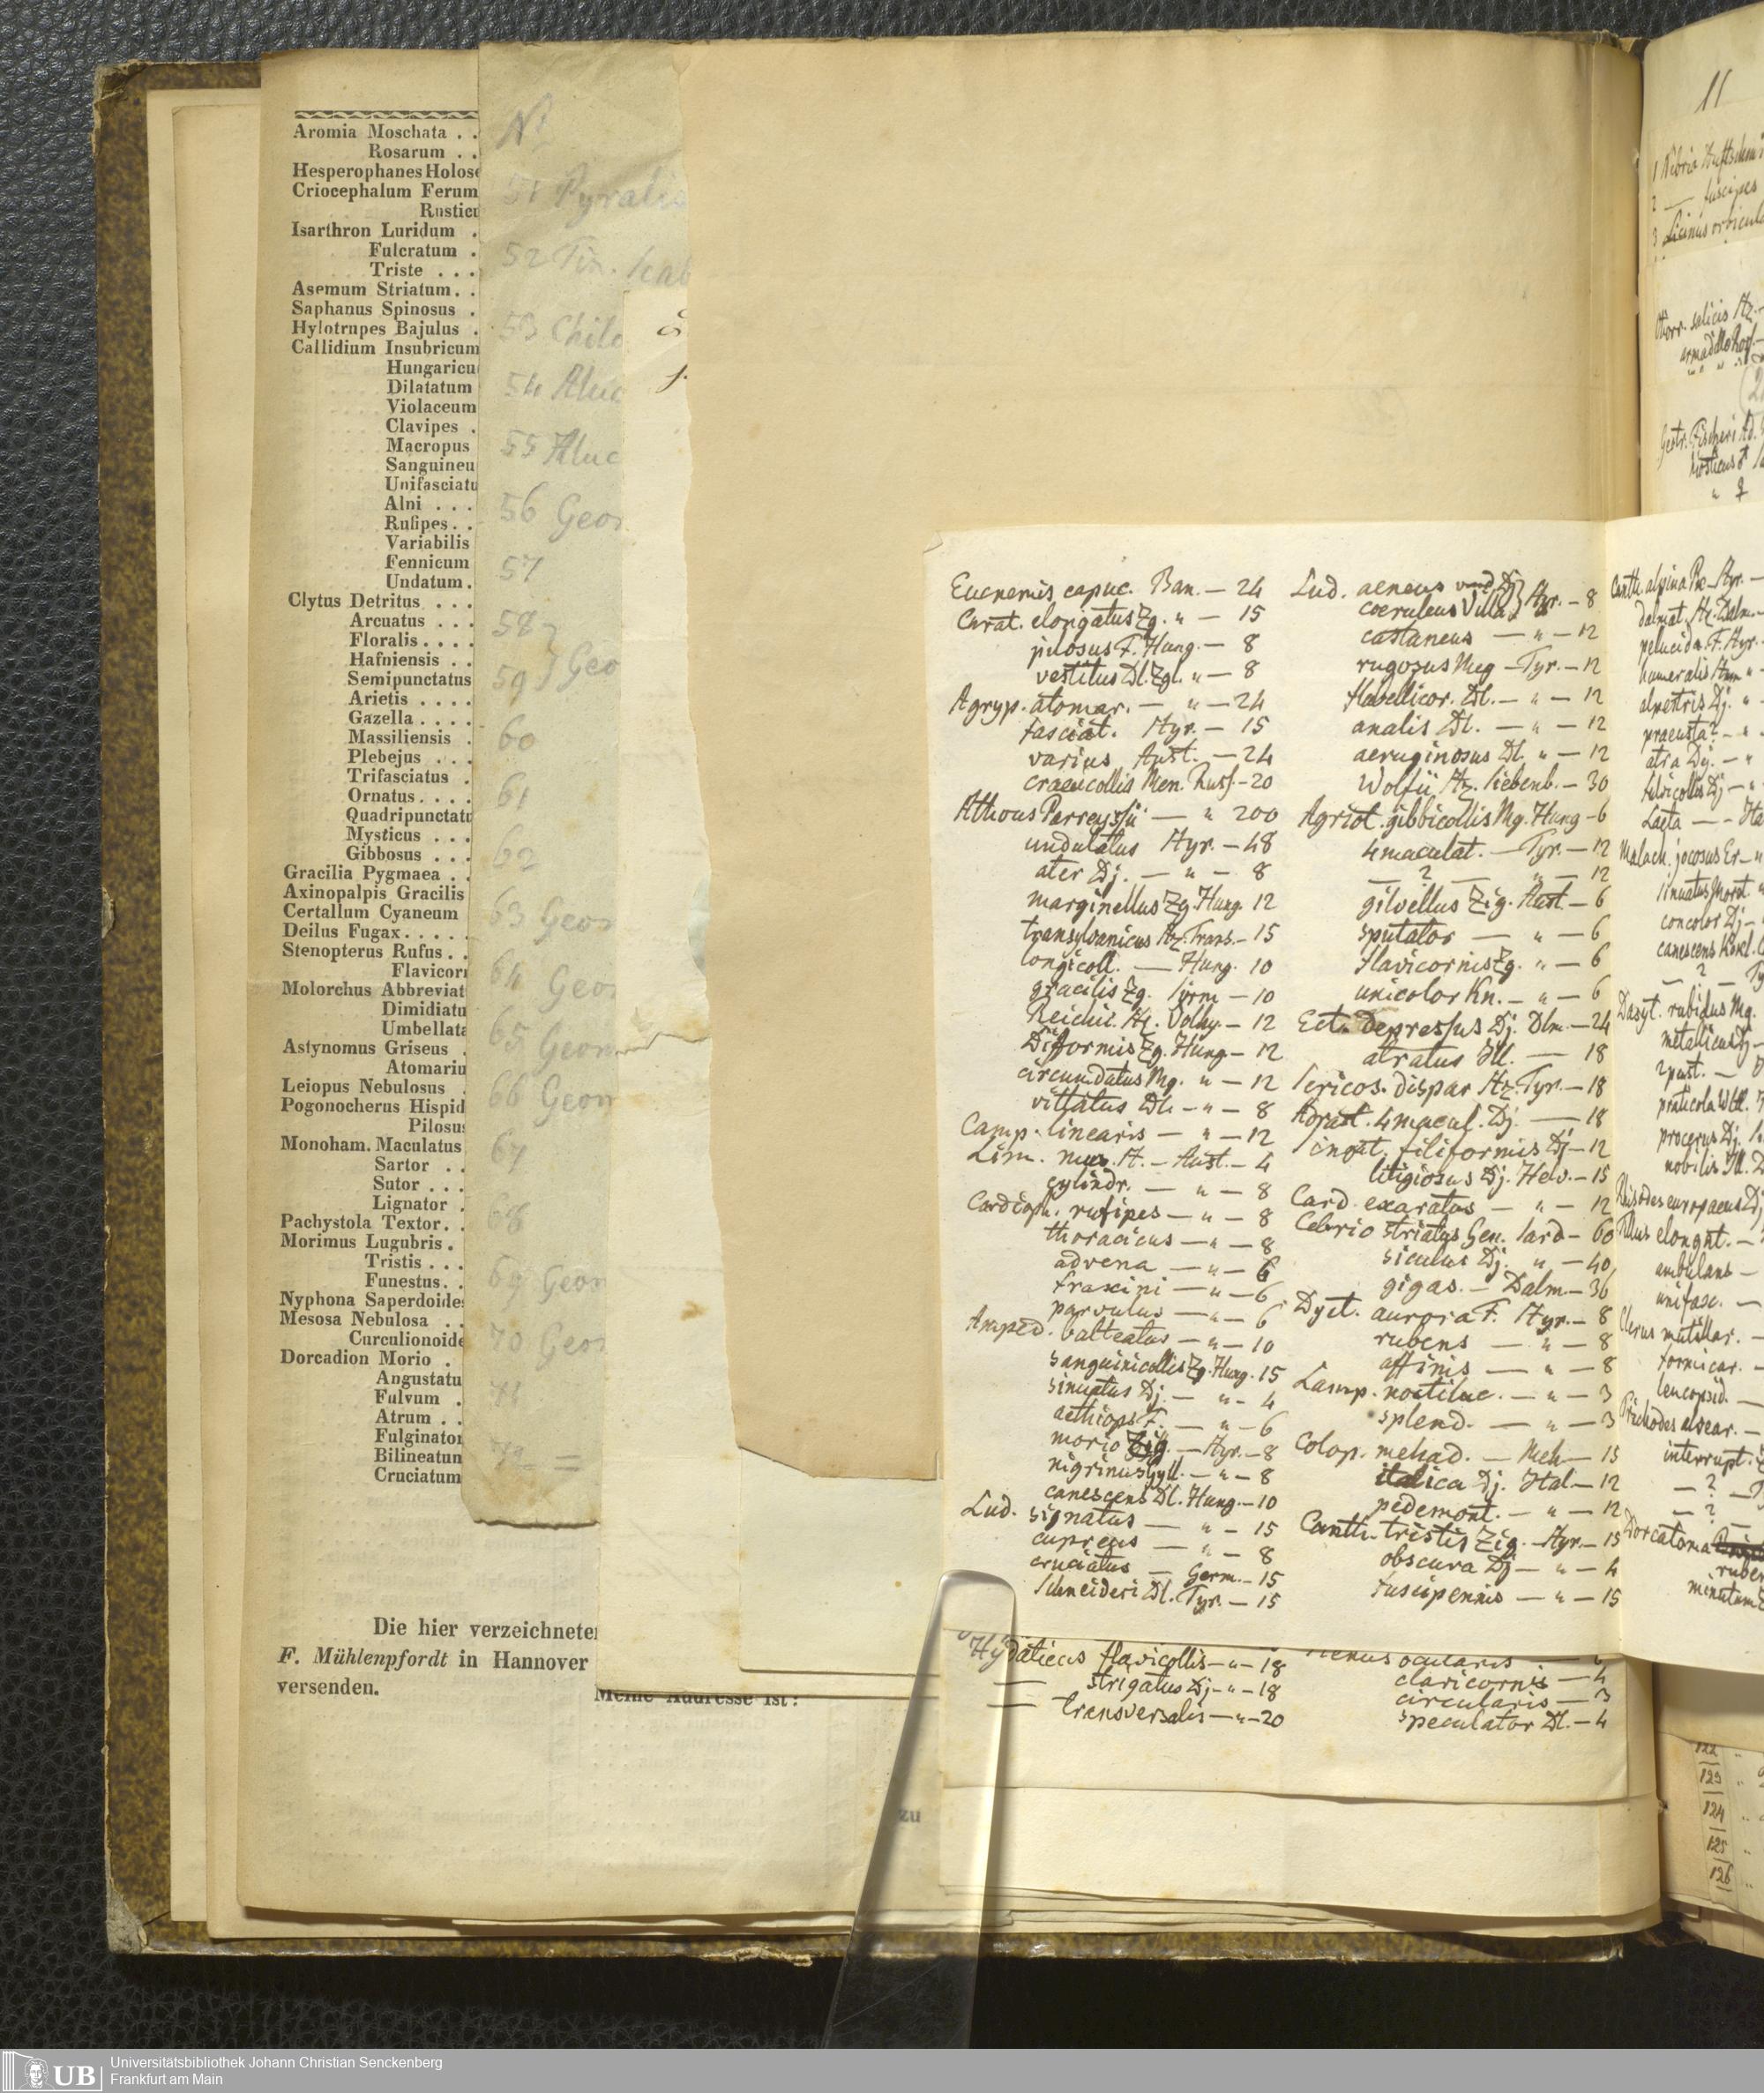 Aromia Moschata . .
Rosarum . .
Hesperophanes Holose
Criocephalum Ferum
Rusticu
Isarthron Luridum .
Fulcratum .
Triste . . .
Asemum Striatum. .
Saphanus Spinosus .
Hylotrupes Bajulus .
Callidium Insubricum
Hungaricu
Dilatatum
Violaceum
Clavipes .
Macropus
Sanguineu
Unifasciatu
Alni . . .
Rufipes. .
Variabilis
Fennicum
Undatum.
Clytus Detritus . . .
Arcuatus . . .
Floralis. . . .
Hafniensis . .
Semipunctatus
Arietis . . . .
Gazella. . . .
Massiliensis .
Plebejus . . .
Trifasciatus .
Ornatus. . . .
Quadripunctatu
Mysticus . . .
Gibbosus . . .
Gracilia Pygmaea . .
Axinopalpis Gracilis
Certallum Cyaneum
Deilus Fugax. . . . .
Stenopterus Rufus. .
Flavicorn
Molorchus Abbreviat
Dimidiatu
Umbellata
Astynomus Griseus .
Atomariu
Leiopus Nebulosus .
Pogonocherus Hispid
Pilosus
Monoham. Maculatus
Sartor . .
Sutor . . .
Lignator .
Pachystola Textor. .
Morimus Lugubris .
Tristis . . .
Funestus. .
Nyphona Saperdoides
Mesosa Nebulosa . .
Curculionoide
Dorcadion Morio .
Angustatu
Fulvum .
Atrum . .
Fulginator
Bilineatum
Cruciatum
Die hier verzeichneten
F. Mühlenpfordt in Hannover
versenden.
Meine Addresse ist:
zu
51 Pyralis
52 Tin.
53 Chilo
54 Aluc
55 Aluc
56 Geom
57
58
59 } Geo
60
61
62
63 Geom
64 Geom
65 Geom
66 Geom
67
68
69 Geom
70 Geom
71
Eucnemis capuc. Ban. — 24
Cerat. elongatus Zg. " — 15
pilosus F. Hung. — 8
vestitus Dl. Zgl. " — 8
Agryp. atomar. — " — 24
fasciat. Styr. — 15
varius Aust. — 24
crassicollis Men. Russ. — 20
Athous Parreyssii — " 200
undulatus Styr. — 48
ater Dj. — " — 8
marginellus Zg. Hung. 12
transylvanicus Hz. Trans. — 15
longicoll. — Hung. 10
gracilis Zg. Sirm — 10
Reichii. Hz. Volhy. — 12
Difformis Zg. Hung — 12
circumdatus Mg. " — 12
vittatus Dl. — " — 8
Camp. linearis — " — 12
Lim. mus. St. — Aust. — 4
cylindr. — " — 8
Cardioph. rufipes — " — 8
thoracicus — " — 8
advena — " — 6
fraxini — " — 6
parvulus — " — 6
Amped. balteatus — " — 10
sanguinicollis Zg. Hung. 15
sinuatus Dj. — " — 4
aethiops F. — " — 6
morio Zig. — Styr. — 8
nigrinus Gyll. — " — 8
canescens Dl. Hung. — 10
Lud. signatus — " — 15
cupreus — " — 8
cruciatus — Germ. — 15
Schneideri Dl. Tyr. — 15
Hydaticus flavicollis — " — 18
— strigatus Dj — " — 18
— transversalis — " — 20
Lud. aeneus var Dj
coeruleus Villa } Styr. — 8
castaneus — " — 12
rugosus Meg — Tyr. — 12
flabellicor. Dl. — " — 12
analis Dl. — " — 12
aeruginosus Dl. " — 12
Wolfii Hz. Siebenb. — 30
Agriot. gibbicollis Mg. Hung — 6
4maculat. — Tyr. — 12
— ? — " — 12
gilvellus Zig. Aust. — 6
sputator — " — 6
flavicornis Zg. " — 6
unicolor Kn. — " — 6
Ect. Depressus Dj. Dlm. — 24
atratus Ill. — 18
Sericos. dispar Hz. Tyr. — 18
Adrast. 4macul. Dj. — 18
Synapt. filiformis Dj — 12
litigiosus Dj. Helv. — 15
Card. exaratus — " — 12
Cebrio striatus Gen. Sard — 60
siculus Dj. " — 40
gigas. — Dalm — 36
Dyct. aurora F. Styr. — 8
rubens — " — 8
affinis — " — 8
Lamp. noctiluc. — " — 3
splend. — " — 3
Colop. mehad. — Meh — 15
italica Dj. Ital — 12
pedemont. — " — 12
Canth. tristis Zig. Styr. — 15
obscura Dj — " — 4
fuscipennis — " — 15
ocularis
claricornis — 4
circularis — 3
speculator Dl. — 4
11
1 Nebria
2 — fuscipes
3 Licinus
Canth. alpina Pz — Styr. —
dalmat. Hz. Dalm. —
pelucida. F. Styr.
humeralis
alpestris Dj. "
praeusta? — "
atra Dj. — "
fulvicollis Dj — "
Laeta —
Malach. jocosus Er — "
concolor Dj —
— ? — Ty
Dasyt. rubidus Mg.
2pust. —
procerus Dj.
nobilis Ill.
europaeus Dj
Tillus elongat. —
ambulans —
unifasc. —
Clerus mutillar. —
formicar. —
leucopsid. —
Trichodes alvear. —
interrupt.
— ? —
— ? —
Dorcatoma
minutum
122
123
124
125
126
UB
Universitätsbibliothek Johann Christian Senckenberg
Frankfurt am Main